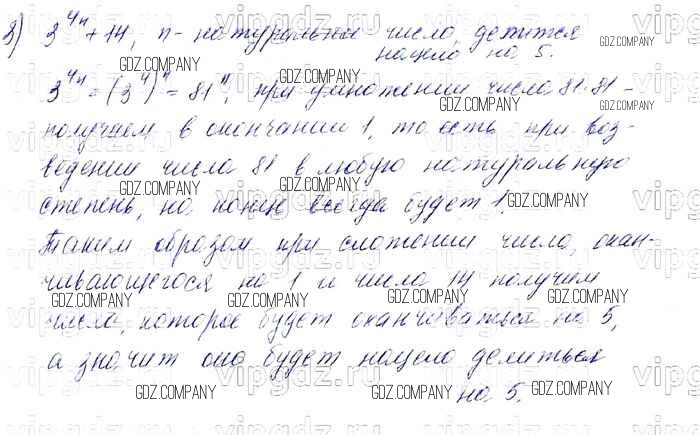 3) 3^{4n} + 14, n - натуральное число, делится
нацело на 5.
3^{4n} = (3^4)^n = 81^n, при умножении числа 81·81 -
получаем в окончании 1, то есть при воз-
ведении числа 81 в любую натуральную
степень, на конце всегда будет 1.
Таким образом при сложении числа, окан-
чивающегося на 1 и числа 14 получим
число, которое будет оканчиваться на 5,
а значит оно будет нацело делиться
на 5.